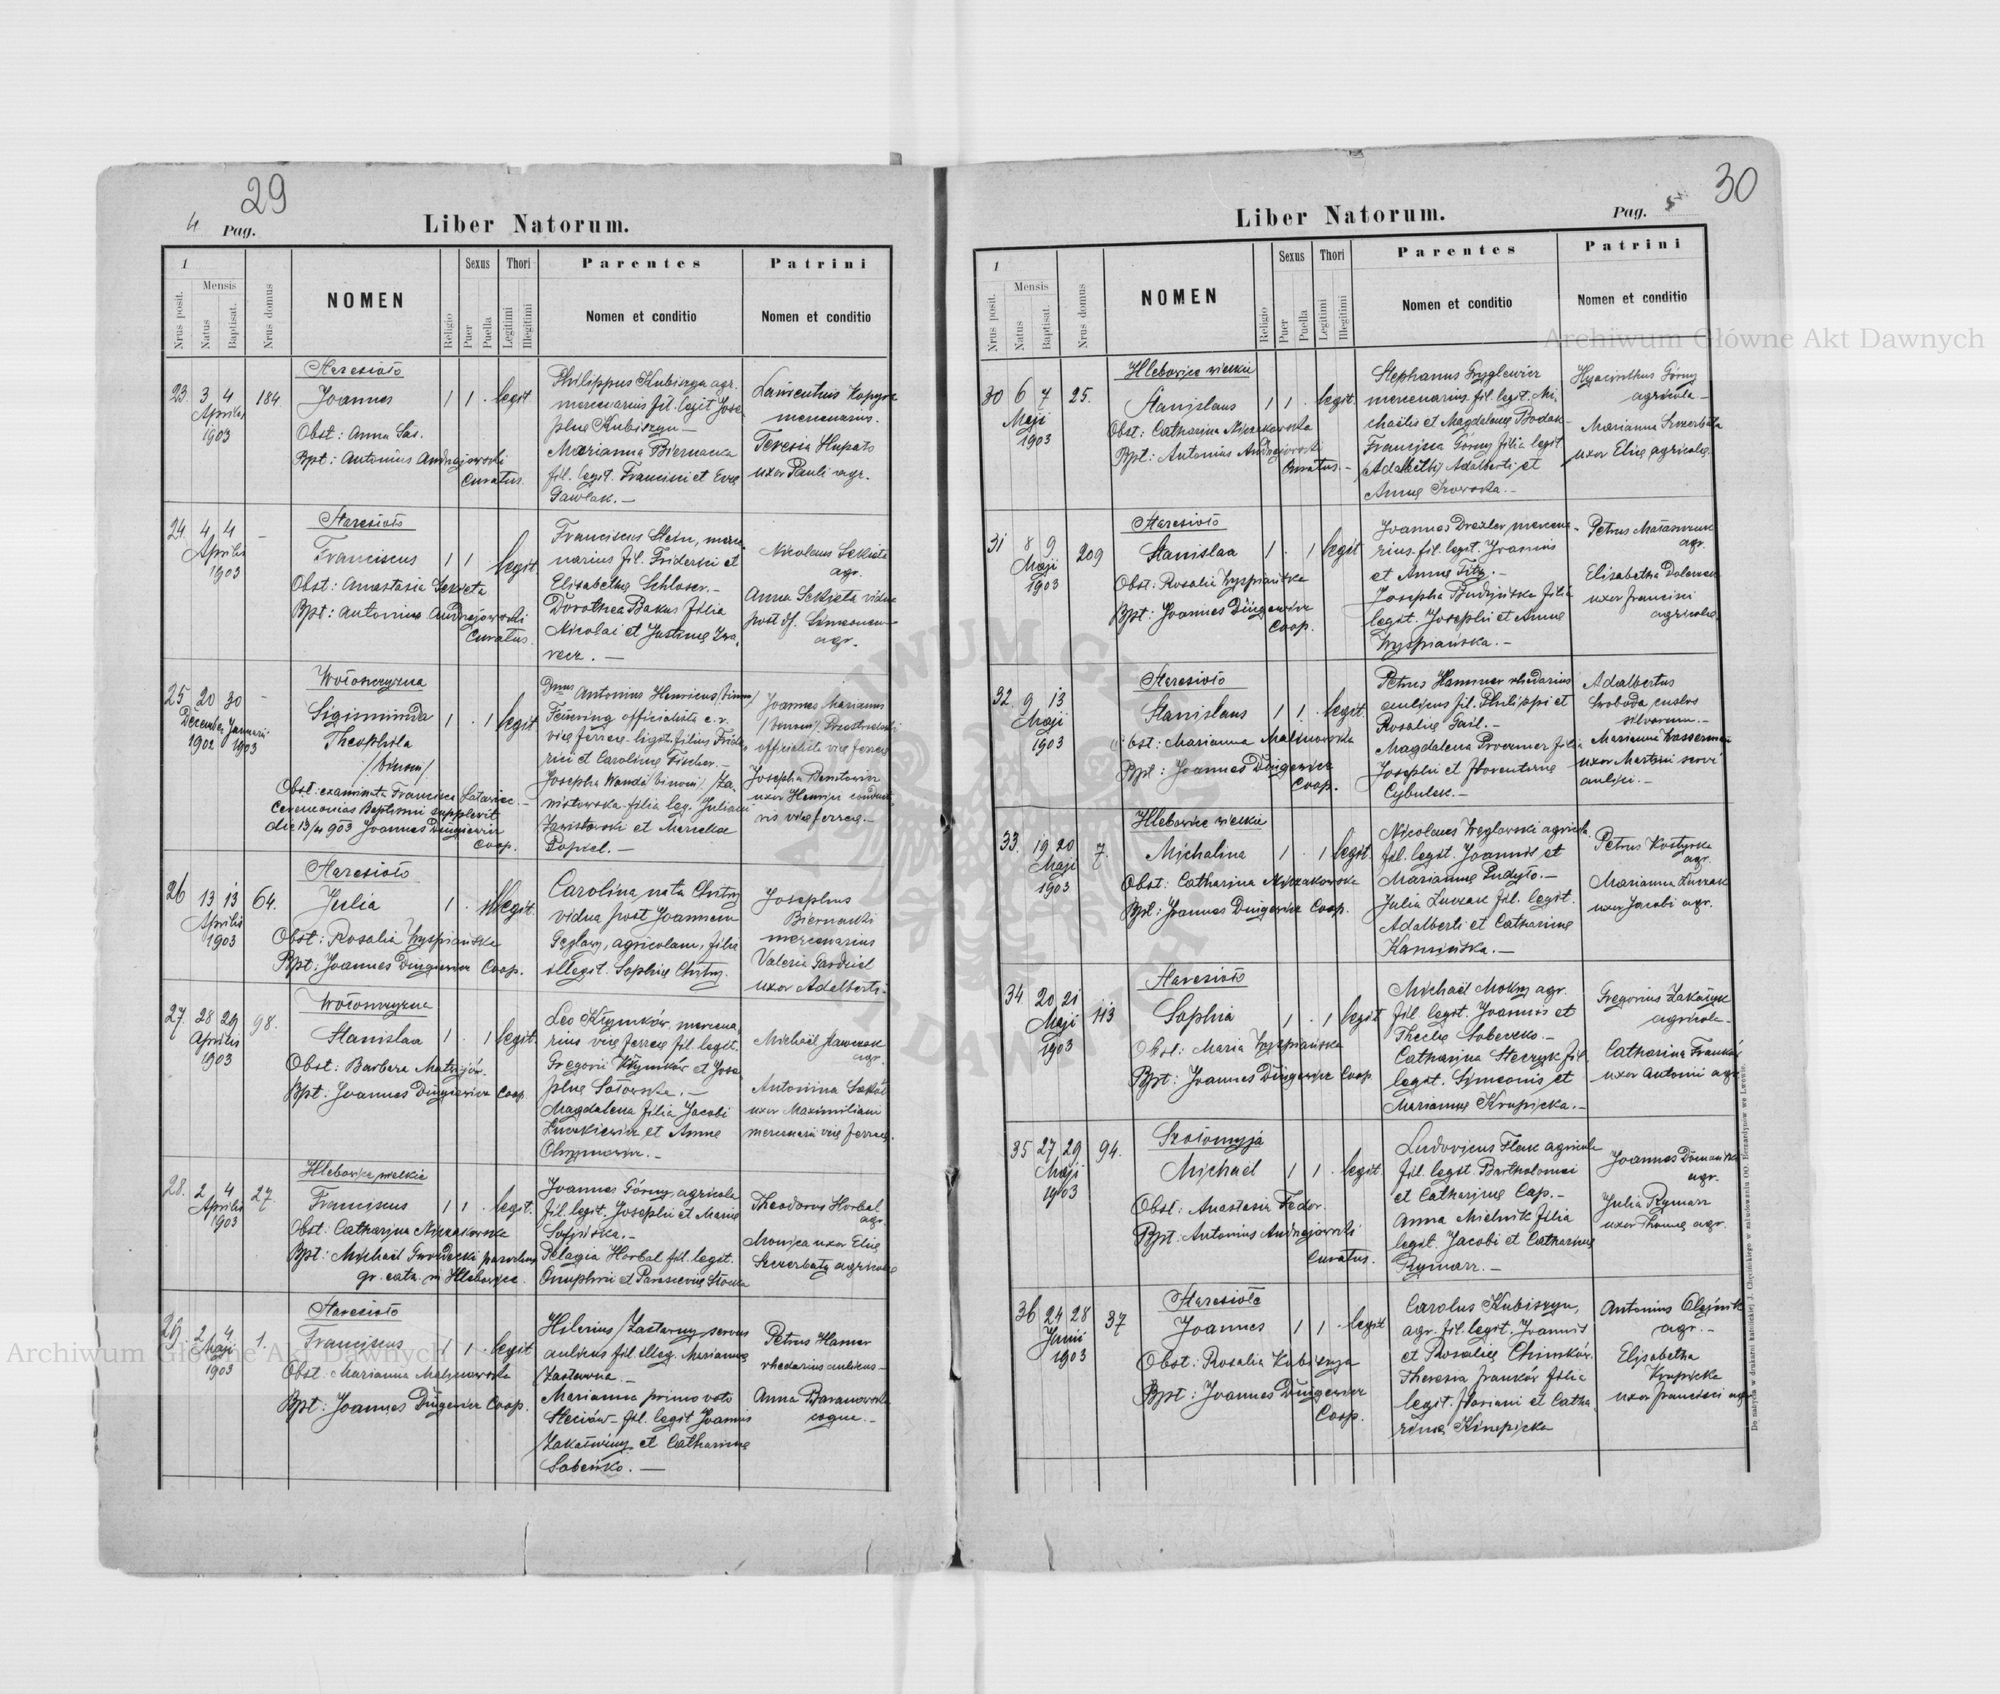 29
4 Pag.
Liber Natorum.
1
Mensis
Nrus posit.
Natus
Baptisat.
Nrus domus
NOMEN
Religio
Sexus
Puer
Puella
Thori
Legitimi
Illegitimi
Parentes
Nomen et conditio
Patrini
Nomen et conditio
Staresioło
23. 3 4 184. Joannes 1 1 . legit
Aprilis
1903
Obst: Anna Sas.
Bpt: Antonius Andrejowski
Curatus
Philippus Kubiszyn agr.
mercenarius fil. legit Jose-
phae Kubiszyn —
Marianna Biernacka
fil. legit. Francisci et Evae
Gawlak. —
Laurentius
mercenarius.
Teresia Hupało
uxor Pauli agr.
Staresioło
24. 4 4 - Franciscus 1 1 legit.
Aprilis
1903
Obst: Anastasia Sekieta
Bpt: Antonius Andrejowski
Curatus.
Franciscus Stein, merce-
narius fil. Friderici et
Elisabethae Schlosser. —
Dorothea Bakus filia
Nicolai et Justinae
Nicolaus Sekieta
agr.
Anna Sekieta vidua
post df. Simeonem
agr.
Wołoszczyzna
25 20 30 - Sigismunda 1 . 1 legit
Decembr. Januarii
1902 1903
Theophila
/binom/
Obst: examinata Francisca
Ceremonias Baptismi supplevit
die 13/4 903 Joannes Dżugiewicz
Coop.
Dnus Antonius Henricus /binom/
Feuering officialista c. r.
viae ferreae legit. filius Fride-
rici et Carolinae Fischer. —
Josepha Wanda /binom/ Za-
wistowska filia leg. Juliani
Zawistowski et Marcelae
Popiel. —
Joannes Marianus
/binom/
officialista viae ferreae
Josepha
uxor Henrici conducto-
ris viae ferreae. —
Staresioło
26 13 13 64. Julia 1 . Illegit.
Aprilis
1903
Obst: Rosalia Wyspiańska
Bpt: Joannes Dżugiewicz Coop.
Carolina nata
vidua post Joannem
agricolam, filia
illegit. Sophiae
Josephus
Biernacki
mercenarius
Valeria Gardziel
uxor Adalberti —
Wołoszczyzna
27. 28 29 98. Stanislaa 1 . 1 legit.
Aprilis
1903
Obst: Barbara Matwijów.
Bpt: Joannes Dżugiewicz Coop.
Leo Kłymków, mercena-
rius viae ferreae fil. legit.
Gregorii Kłymków et Jose-
phae
Magdalena filia Jacobi
et Annae
Michaël
agr.
Antonina Sokół
uxor Maximiliani
mercenarii viae ferreae.
Hlebowice wielkie
28. 2 4 27. Franciscus 1 1 . legit.
Aprilis
1903
Obst: Catharina
Bpt: Michaël parochus
gr. cath. in Hlebowice.
Joannes Górny, agricola
fil. legit. Josephi et Mariae
Pelagia Horbal fil. legit.
Onuphrii et Parasceviae
Theodorus Horbal
agr.
Monica uxor Eliae
Szczerbaty agricolae
Staresioło
29. 2 4 1. Franciscus 1 1 . legit
Maji
1903
Obst: Marianna Malinowska
Bpt: Joannes Dżugiewicz Coop.
Hilerius Zastawny servus
aulicus fil. illeg. Mariannae
Zastawna. —
Marianna primo voto
Steciów — fil. legit Joannis
et Catharinae
Petrus Hamer
rhedarius aulicus —
Anna Baranowska
coqua. —
30
Liber Natorum.
Pag. 5
1
Mensis
Nrus posit.
Natus
Baptisat.
Nrus domus
NOMEN
Religio
Sexus
Puer
Puella
Thori
Legitimi
Illegitimi
Parentes
Nomen et conditio
Patrini
Nomen et conditio
Hlebowice wielkie
30 6 7 25. Stanislaus 1 1 . legit.
Maji
1903
Obst: Catharina
Bpt: Antonius Andrejowski
Curatus. —
Stephanus Gryglewicz
mercenarius fil. legit. Mi-
chaëlis et Magdalenae Bodak —
Francisca Górny filia legit
Adalberti et
Annae
Hyacinthus Górny
agricola —
Marianna Szczerbata
uxor Eliae agricolae
Staresioło
31 8 9 209 Stanislaa 1 . 1 legit
Maji
1903
Obst: Rosalia Wyspiańska
Bpt: Joannes Dżugiewicz
Coop.
Joannes Drexler mercena-
rius fil. legit. Joannis
et Annae Titz. —
Josepha Budzińska filia
legit. Josephi et Annae
Wyspiańska. —
Petrus
agr.
Elisabetha
uxor Francisci
agricolae
Staresioło
32. 9 13 Stanislaus 1 1 . legit.
Maji
1903
Obst: Marianna Malinowska
Bpt: Joannes Dżugiewicz
Coop.
Petrus Hammer rhedarius
aulicus fil. Philippi et
Rosaliae Gail. —
Magdalena filia
Josephi et Florentinae
Cybulek. —
Adalbertus
Swoboda custos
silvarum. —
Marianna Wasserman
uxor Martini servi
aulici. —
Hlebowice wielkie
33. 19 20 7. Michalina 1 . 1 legit.
Maji
1903
Obst: Catharina
Bpt: Joannes Dżugiewicz Coop.
Nicolaus Węglowski agricola
fil. legit. Joannis et
Mariannae Pudyło. —
Julia Łuczak fil. legit.
Adalberti et Catharinae
Kamińska. —
Petrus Kostyrka
agr.
Marianna Łuczak
uxor Jacobi agr.
Staresioło
34 20 21 113 Sophia 1 . 1 legit
Maji
1903
Obst: Maria Wyspiańska
Bpt: Joannes Dżugiewicz Coop.
Michaël Mokry agr.
fil. legit. Joannis et
Theclae
Catharina Steczyk fil.
legit. Simeonis et
Mariannae Krupicka. —
Gregorius
agricola —
Catharina Franków
uxor Antonii agr.
Szołomyja
35 27 29 94. Michael 1 1 . legit
Maji
1903
Obst: Anastasia Fedor.
Bpt: Antonius Andrejowski
Curatus.
Ludovicus Flak agricola
fil. legit. Bartholomei
et Catharinae Cap. —
Anna Mielnik filia
legit. Jacobi et Catharinae
Rymarz. —
Joannes Domański
agr.
Julia Rymarz
uxor Thomae agr.
Staresioło
36 24 28 37 Joannes 1 1 . legit
Junii
1903
Obst: Rosalia Kubiszyn
Bpt: Joannes Dżugiewicz
Coop.
Carolus Kubiszyn,
agr. fil. legit. Joannis
et Rosaliae Chimków.
Theresia Franków filia
legit. Floriani et Catha-
rinae Krupicka
Antonius Olejnik
agr. —
Elisabetha
Krupicka
uxor Francisci agr.
Do nabycia w drukarni katolickiej J. Chęcińskiego w zabudowaniu OO. Bernardynów we Lwowie.
Archiwum Główne Akt Dawnych
Archiwum Główne Akt Dawnych